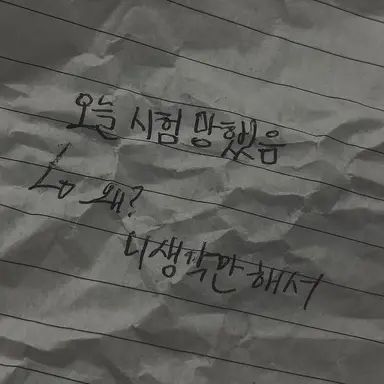 오늘 시험 망했음
↳ 왜?
니 생각만 해서